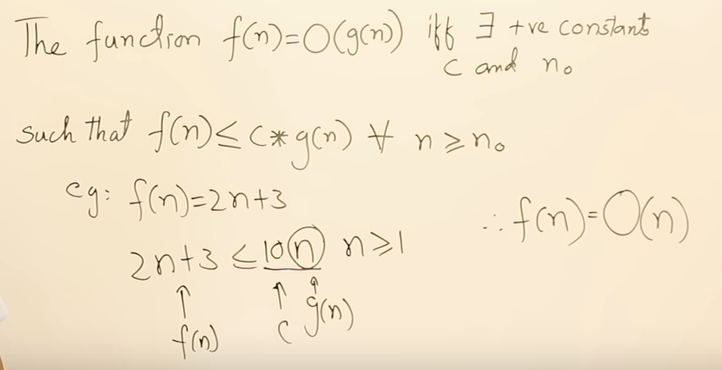 The function f(n)=O(g(n)) iff ∃ +ve constant
c and n₀
such that f(n)≤ c*g(n) ∀ n≥n₀
eg: f(n)=2n+3
2n+3 ≤ 10n n≥1
∴ f(n)=O(n)
↑ ↑ ↑
f(n) c g(n)